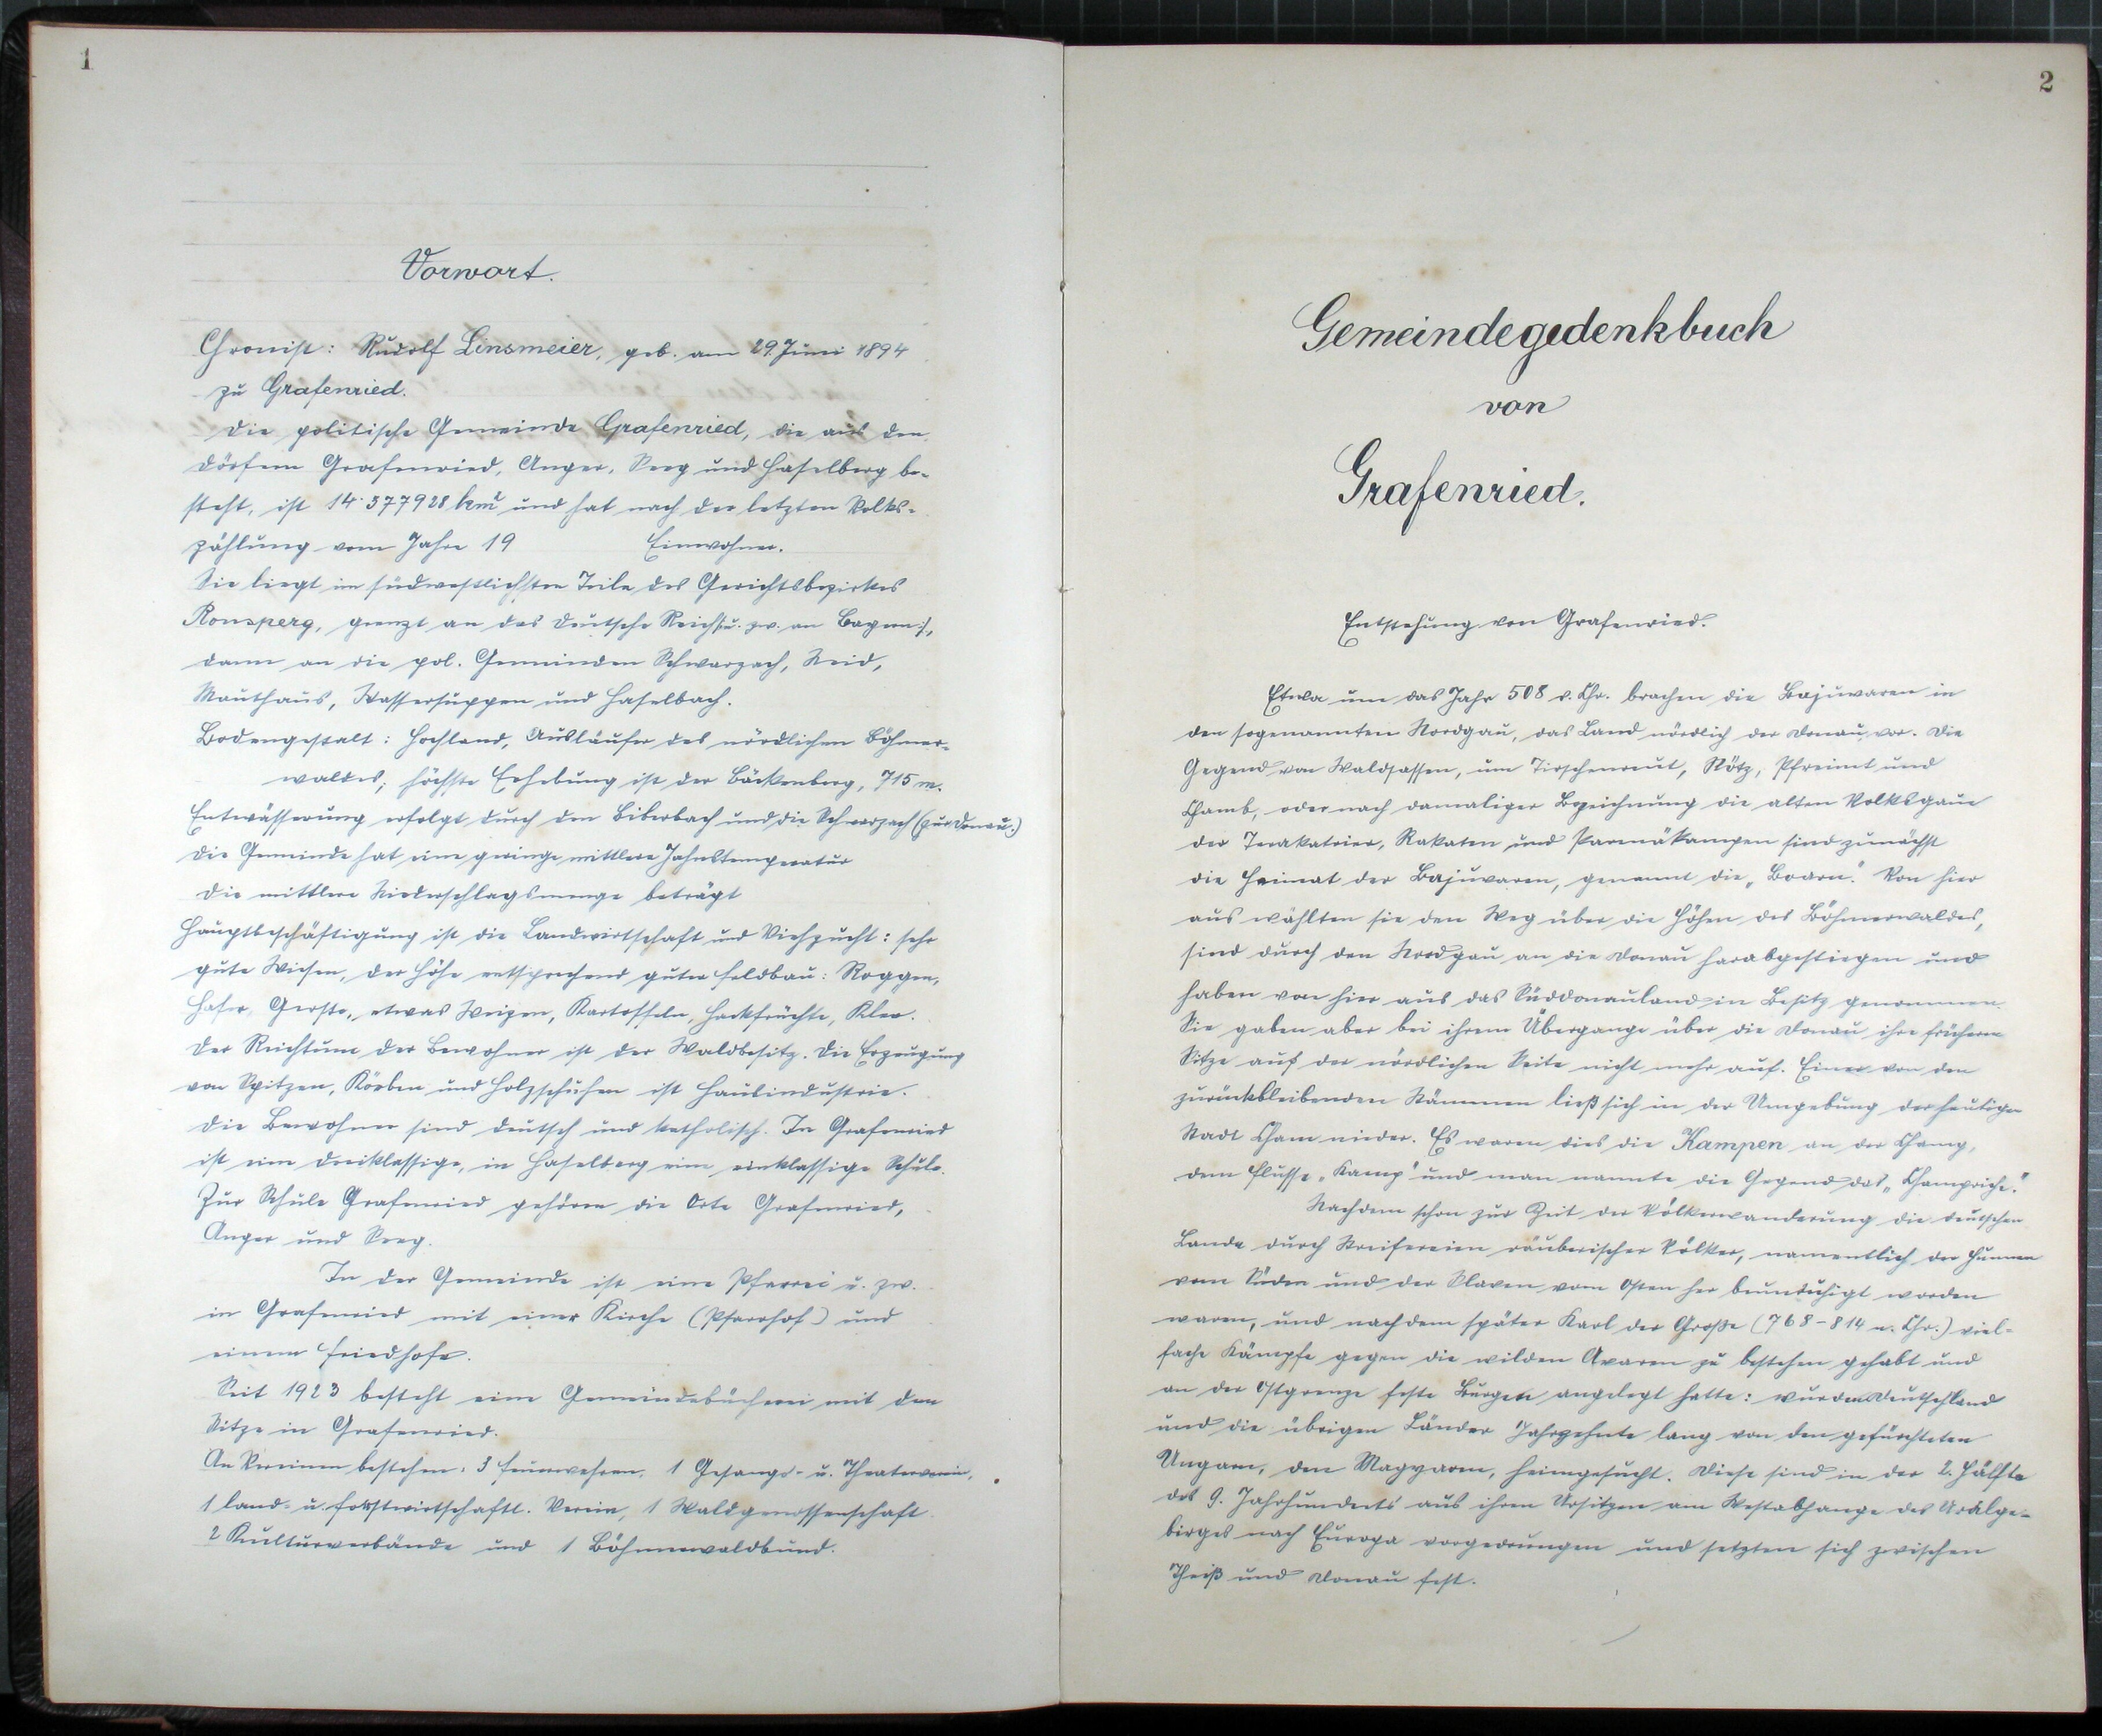 1
Vorwort.
Chronist: Rudolf Linsmeier, geb. am 29. Juni 1894
zu Grafenried.
Die politische Gemeinde Grafenried, die aus den
Dörfern Grafenried, Anger, Seeg und Haselberg be-
steht, ist 14·577928 km² und hat nach der letzten Volks-
zählung vom Jahre 19 Einwohner.
Sie liegt im südwestlichsten Teile des Gerichtsbezirkes
Ronsperg, grenzt an das Deutsche Reich /:u. zw. an Bayern:/,
dann an die pol. Gemeinden Schwarzach, Neid,
Mauthaus, Wassersuppen und Haselbach.
Bodengestalt: Hochland, Ausläufer des nördlichen Böhmer-
waldes; höchste Erhebung ist der Bäckenberg, 715 m.
Entwässerung erfolgt durch den Biberbach und die Schwarzach (zur Donau.)
Die Gemeinde hat eine geringe mittlere Jahrestemperatur
Die mittlere Niederschlagsmenge beträgt
Hauptbeschäftigung ist die Landwirtschaft und Viehzucht: sehr
gute Wiesen, der Höhe entsprechend guter Feldbau: Roggen,
Hafer, Gerste, etwas Weizen, Kartoffeln, Hackfrüchte, Klee.
Der Reichtum der Bewohner ist der Waldbesitz. Die Erzeugung
von Spitzen, Körben und Holzschuhen ist Hausindustrie.
Die Bewohner sind deutsch und katholisch. In Grafenried
ist eine dreiklassige, in Haselberg eine einklassige Schule.
Zur Schule Grafenried gehören die Orte Grafenried,
Anger und Seeg.
In der Gemeinde ist eine Pfarrei u. zw.
in Grafenried mit einer Kirche (Pfarrhof) und
einem Friedhofe.
Seit 1923 besteht eine Gemeindebücherei mit dem
Sitze in Grafenried.
An Vereinen bestehen: 3 Feuerwehren, 1 Gesangs- u. Theaterverein,
1 land- u. forstwirtschaftl. Verein, 1 Waldgenossenschaft
2 Kulturverbände und 1 Böhmerwaldbund.
2
Gemeindegedenkbuch
von
Grafenried.
Entstehung von Grafenried.
Etwa um das Jahr 508 v. Chr. brachen die Bajuwaren in
den sogenannten Nordgau, das Land nördlich der Donau, vor. Die
Gegend von Waldsassen, um Tirschenreut, Rötz, Pfreimt und
Chamb, oder nach damaliger Bezeichnung die alten Volksgaue
der Terakatrier, Rakaten und Parmäkampen sind zunächst
die Heimat der Bajuwaren, genannt die „Boarn". Von hier
aus wählten sie den Weg über die Höhen des Böhmerwaldes,
sind durch den Nordgau an die Donau herabgestiegen und
haben von hier aus das Süddonauland in Besitz genommen.
Sie gaben aber bei ihrem Übergange über die Donau ihre frühern
Sitze auf der nördlichen Seite nicht mehr auf. Einer von den
zurückbleibenden Stämmen ließ sich in der Umgebung der heutigen
Stadt Cham nieder. Es waren dies die Kampen an der Chamg,
dem Flusse „Kamp" und man nannte die Gegend das „Champriche."
Nachdem schon zur Zeit der Völkerwanderung die deutschen
Lande durch Streifereien räuberischer Völker, namentlich der Hunnen
vom Süden und der Slaven vom Osten her beunruhigt worden
waren, und nachdem später Karl der Große (768-814 n. Chr.) viel-
fache Kämpfe gegen die wilden Avaren zu bestehen gehabt und
an der Ostgrenze feste Burgen angelegt hatte: wurden Deutschland
und die übrigen Länder Jahrzehnte lang von den gefürchteten
Ungarn, den Magyaren, heimgesucht. Diese sind in der 2. Hälfte
des 9. Jahrhunderts aus ihren Ursitzen am Westabhange des Uralge-
birges nach Europa vorgedrungen und setzten sich zwischen
Theiß und Donau fest.